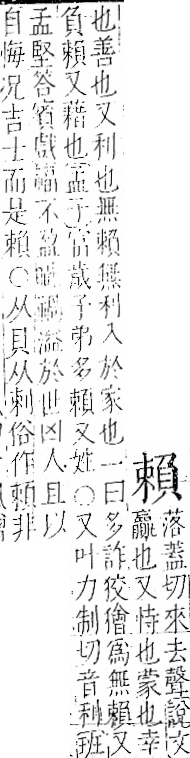 賴
落蓋切來去聲說文
贏也又恃也蒙也幸
也善也又利也無賴無利入於家也一曰多詐狡獪爲無賴又
負賴又藉也孟子富歲子弟多賴又姓○又叶力制切音利班
孟堅答賓戲福不盈眦禍溢於世凶人且以
自悔况吉士而是賴○从貝从剌俗作頼非